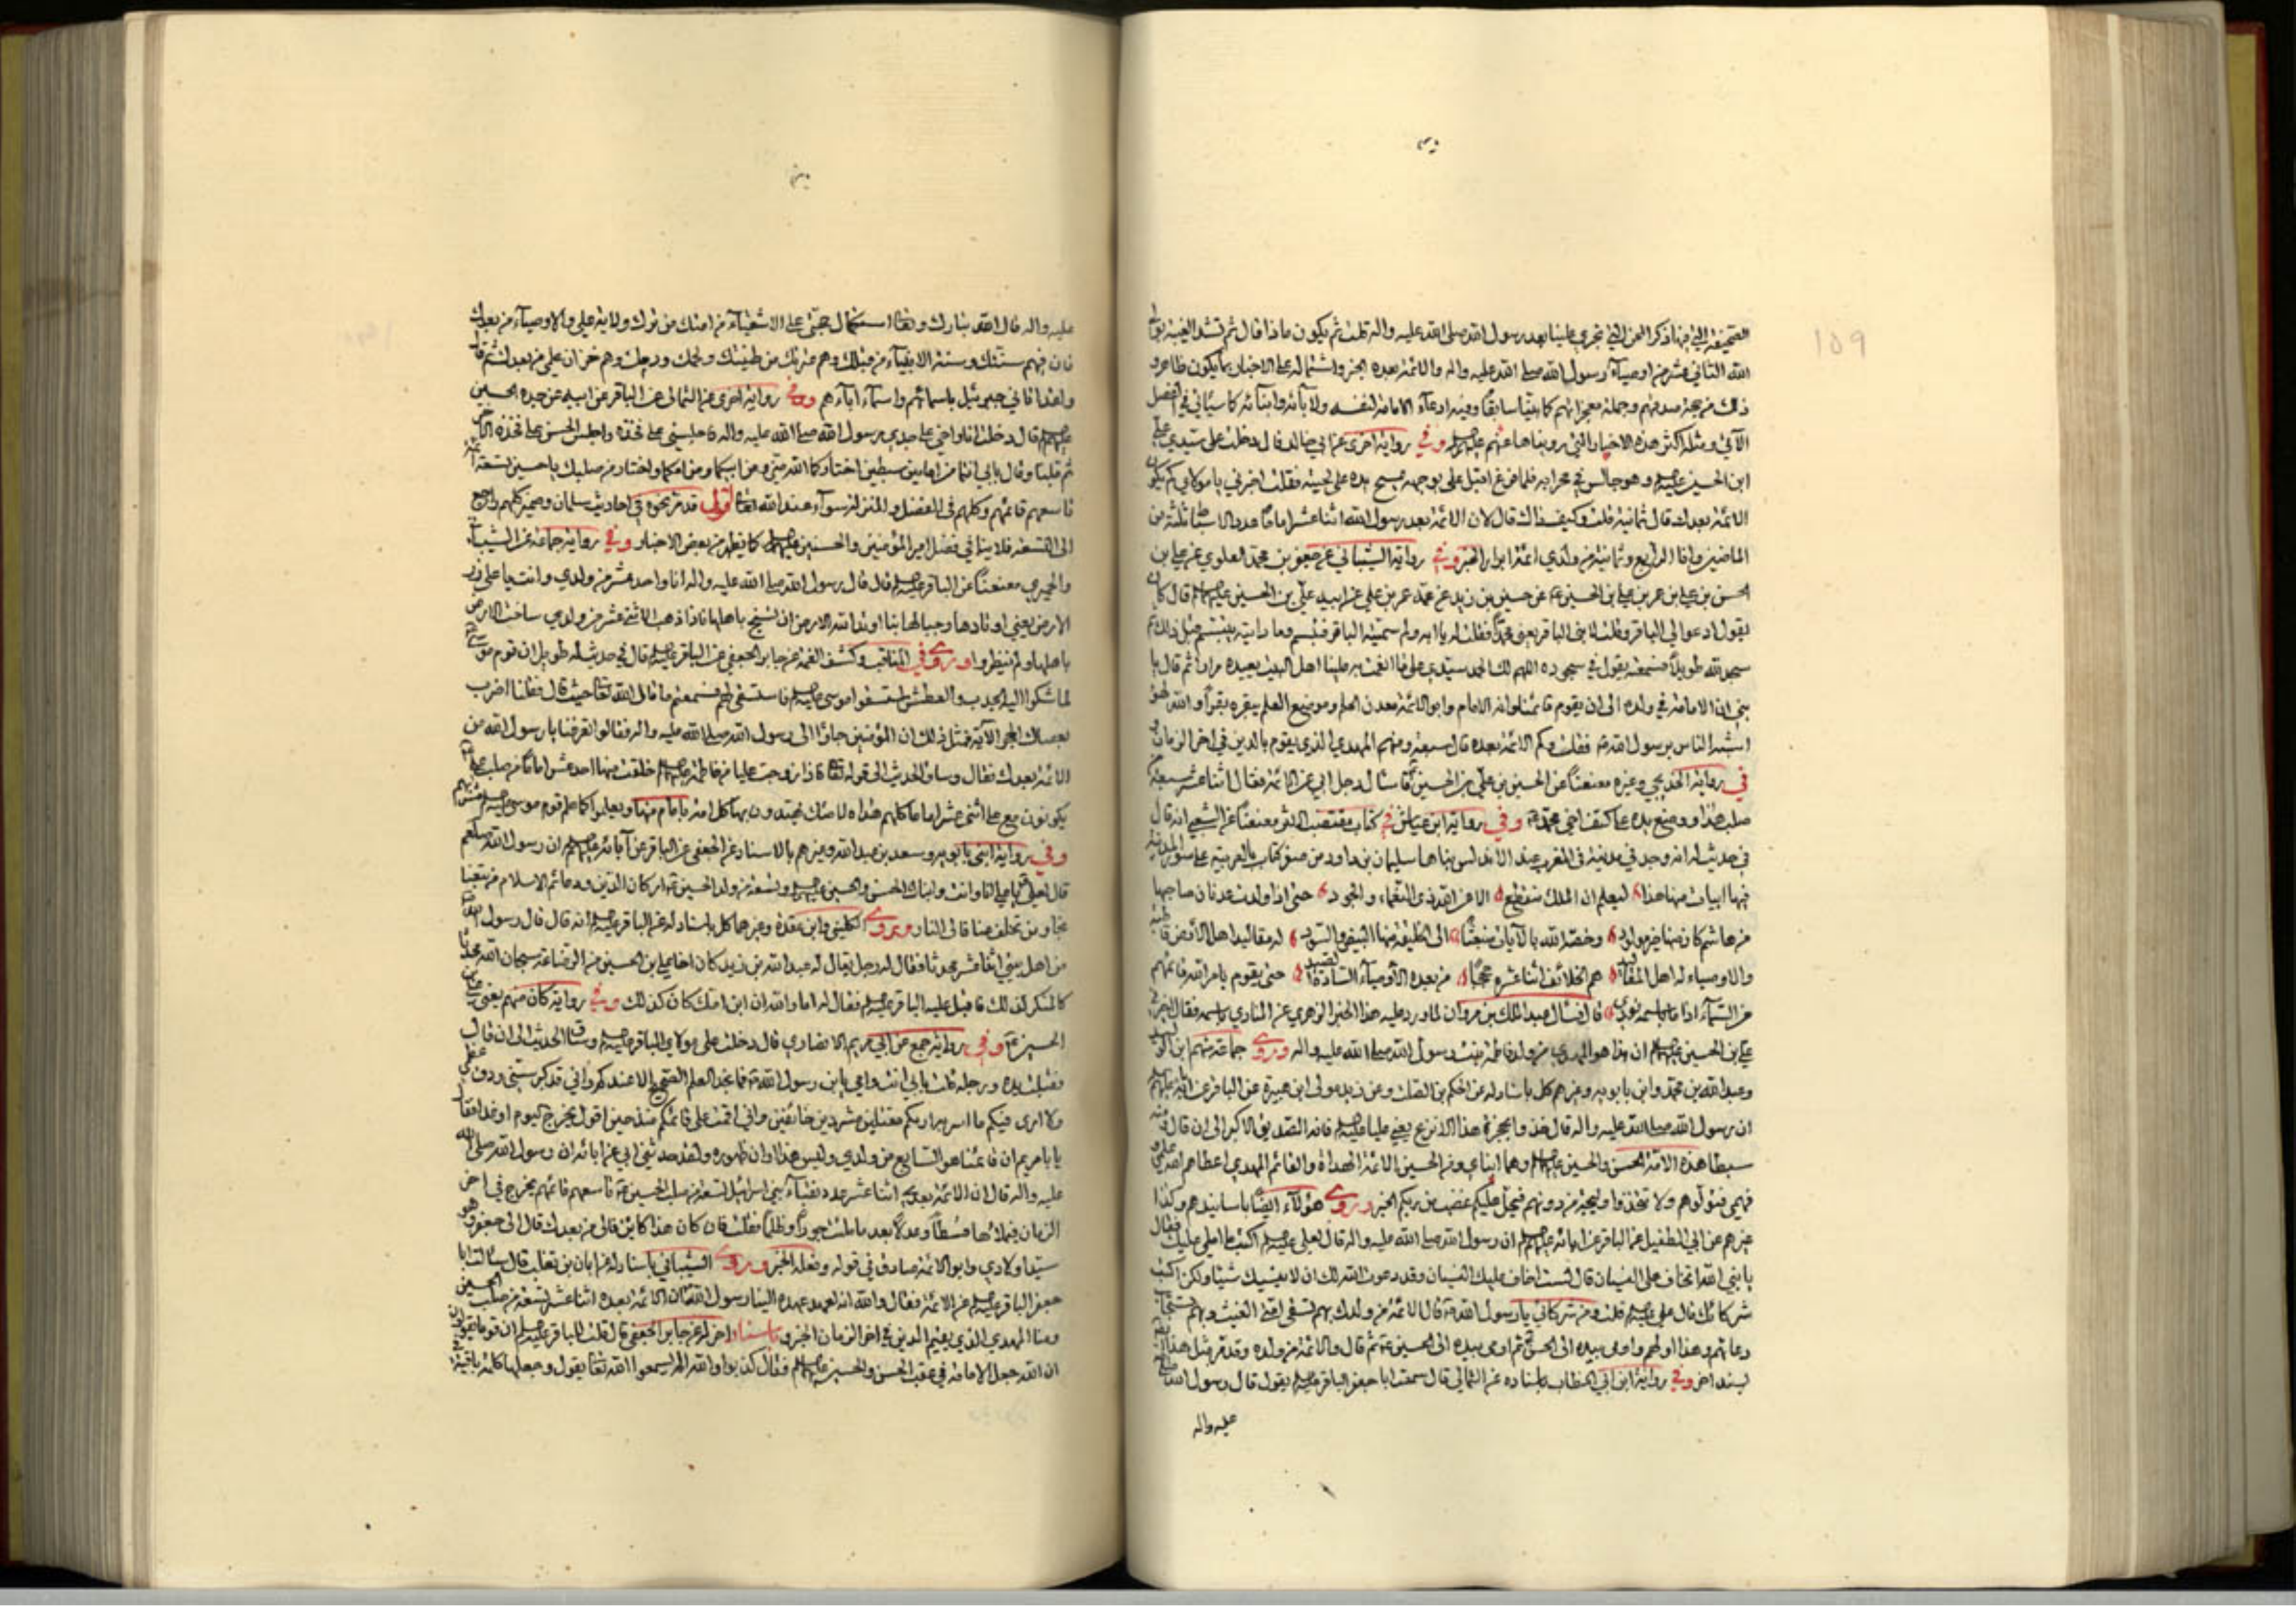 ١٥٩
الصحيفة التي فيها ذكر المحن التي تجري علينا بعد رسول الله صلى الله عليه واله قلت ثم يكون ماذا قال ثم تشتد الغيبة بولي
الله الثاني عشر من اوصيآء رسول الله صلى الله عليه واله والائمة بعده الخبر واشتماله على الاخبار بما يكون ظاهر و
ذلك من صدقهم وجملة معجزاتهم كما بينا سابقًا وفيه ادعآء الامامة لنفسه ولآبائه وابنائه كما سيأتي في الفصل
الآتي ومثله اكثر هذه الاخبار التي رويناها عنهم وفي رواية اخرى عن ابي خالد قال دخلت على سيدي علي
ابن الحسين وهو جالس في محرابه فلما فرغ اقبل علي بوجهه يمسح يده على لحيته فقلت اخبرني يا مولاي كم يكون
الائمة بعدك قال ثمانية قلت وكيف ذلك قال لان الائمة بعد رسول الله اثنا عشر اماما عدد الاسباط ثلثة من
الماضين وانا الرابع وثمانية من ولدي ائمة ابرار الخبر وفي رواية الشيباني عن جعفر بن محمد العلوي عن علي بن
الحسن بن علي بن عمر بن علي بن الحسين عن حسين بن زيد عن عمه عمر بن علي عن ابيه علي بن الحسين قال كان
يقول ادعوا لي الباقر وقلت لابني الباقر يعني محمدًا فقلت له يا ابه ولم سميته الباقر فتبسم وما رايته يتبسم قبل ذلك ثم
سجد لله طويلًا فسمعته يقول في سجوده اللهم لك الحمد سيدي على ما انعمت به علينا اهل البيت يعيده مرارا ثم قال يا
بني ان الامامة في ولده الى ان يقوم قائمنا وانه الامام وابو الائمة معدن العلم وموضع العلم يبقره بقرًا والله لهو
اشبه الناس برسول الله فقلت وكم الائمة بعده قال سبعة ومنهم المهدي الذي يقوم بالدين في اخر الزمان و
في رواية وغيره معنعنًا عن الحسين بن علي بن الحسين قال سأل رجل ابي عن الائمة فقال اثنا عشر سبعة من
صلب هذا ووضع يده على كتف اخي محمد وفي رواية ابن عياش في كتاب مقتضب الاثر معنعنًا عن الشعبي انه قال
في حديث له انه وجد في مدينة في المغرب عند الاندلس بناها سليمان بن داود من صفر كتاب بالعربية على سور المدينة
فيها ابيات منها هذا ليعلم ان الملك منقطع الا من الله ذي النعماء والجود حتى اذا ولدت عدنان صاحبها
من هاشم كان منها خير مولود وخصه الله بالآيات منبعثًا الى الخليقة منها البيض والسود له مقاليد اهل الارض قاطبة
والاوصياء له اهل المقاليد هم الخلائف اثنا عشرة حججًا من بعده الاوصيآء السادة الصيد حتى يقوم بامر الله قائمهم
من السمآء اذا ما باسمه نودي قال فسأل عبد الملك بن مروان لما ورد عليه هذا الخبر الزهري عن المنادي باسمه فقال اخبرني
علي بن الحسين ان هذا هو المهدي من ولد فاطمة بنت رسول الله صلى الله عليه واله وروى جماعة منهم ابن الوليد
وعبد الله بن محمد وابن بابويه وغيرهم كل باسناد له عن الحكم بن الصلت وعن زيد مولى ابن هبيرة عن الباقر عن ابائه
ان رسول الله صلى الله عليه واله قال خذوا بحجزة هذا الانزع يعني عليا فانه الصديق الاكبر الى ان قال منه
سبطا هذه الامة الحسن والحسين وهما ابناي ومن الحسين الائمة الهداة والقائم المهدي اعطاهم الله علمي و
فهمي فتولوهم ولا تتخذوا وليجة من دونهم فيحل عليكم غضب من ربكم الخبر وروى هؤلآء ايضًا باسانيدهم وكذا
غيرهم عن ابي الطفيل عن الباقر عن ابائه ان رسول الله صلى الله عليه واله قال لعلي اكتب ما املي عليك فقال
يا نبي الله اتخاف علي النسيان قال لست اخاف عليك النسيان وقد دعوت الله لك ان لا ينسيك شيئا ولكن اكتب
شركائك قال علي قلت ومن شركائي يا رسول الله قال الائمة من ولدك بهم تسقى امتي الغيث وبهم يستجاب
دعائهم وهذا اولهم واومى بيده الى الحسن ثم اومى بيده الى الحسين ثم قال والائمة من ولده وقد مر مثل هذا
بسند اخر وفي رواية ابن ابي الخطاب باسناده عن الثمالي قال سمعت ابا جعفر الباقر يقول قال رسول الله صلى
عليه واله
عليه واله قال الله تبارك وتعالى استكمال حجتي على الاشقيآء من امتك من ترك ولاية علي والاوصيآء من بعدك
فان فيهم سنتك وسنة الانبيآء من قبلك وهم عترتك من طينتك ولحمك ودمك وهم خزان علمي من بعدك ثم قال
ولقد انباني جبرئيل باسمائهم واسمآء آبآءهم وفي رواية اخرى عن الثمالي عن الباقر عن ابيه عن جده الحسين
قال دخلت انا واخي على جدي رسول الله صلى الله عليه واله فاجلسني على فخذه واجلس الحسن على فخذه الاخرى
ثم قبلنا وقال بابي انتما من امامين سبطين اختاركما الله مني ومن ابيكما ومن امكما واختار من صلبك يا حسين تسعة
تاسعهم قائمهم وكلهم في الفضل والمنزلة سوآء عند الله تعالى اقول قد مر نحوه في احاديث سلمان وضمير كلهم راجع
الى التسعة فلا ينافي فضل امير المؤمنين والحسنين كما يظهر من بعض الاخبار وفي رواية جماعة عن الشيباني
والحميري معنعنًا عن الباقر قال قال رسول الله صلى الله عليه واله انا واحد عشر من ولدي وانت يا علي زر
الارض يعني اوتادها وجبالها بنا اوتد الله الارض ان تسيخ باهلها فاذا ذهب الاثني عشر من ولدي ساخت الارض
باهلها ولم ينظروا وروى في المناقب وكشف الغمة عن جابر الجعفي عن الباقر قال في حديث له طويل ان قوم موسى
لما شكوا اليه الجدب والعطش استسقوا موسى فاستسقى لهم فسمعتم ما قال الله تعالى حيث قال فقلنا اضرب
بعصاك الحجر الآية فمثل ذلك ان المؤمنين جاؤا الى رسول الله صلى الله عليه واله فقالوا تعرفنا يا رسول الله من
الائمة بعدك فقال وساق الحديث الى قوله تعالى فاذا زوجت عليا من فاطمة خلقت منها احد عشر اماما من صلب علي
يكونون مع علي اثني عشر اماما كلهم هداة لامتك يهتدون بها كل امة بامام منها ويعلموا كما علم قوم موسى مشربهم
وفي رواية ابني بابويه وسعد بن عبد الله وغيرهم بالاسناد عن الجعفي عن الباقر عن آبائه ان رسول الله صلعم
قال لعلي يا علي انا وانت وابناك الحسن والحسين وتسعة من ولد الحسين اركان الدين ودعائم الاسلام من تبعنا
نجا ومن تخلف عنا فالى النار وروى الكليني وابن عقدة وغيرهما كل باسناد له عن الباقر انه قال قال رسول الله
من اهل بيتي اثنا عشر محدثا فقال له رجل يقال له عبد الله بن زيد كان اخا علي بن الحسين من الرضاعة سبحان الله محدثا
كالمنكر لذلك فاقبل عليه الباقر فقال له اما والله ان ابن امك كان كذلك وفي رواية كان منهم يعني علي بن
الحسين وفي رواية جمع عن ابي مريم الانصاري قال دخلت على مولاي الباقر وساق الحديث الى ان قال
فقبلت يده ورجله قلت بابي انت وامي يا ابن رسول الله فما نجد العلم الصحيح الا عندكم واني قد كبر سني ودق عظمي
ولا ارى فيكم ما اسر به اراكم مقتلين مشردين خائفين واني اقمت على قائمكم منذ حين اقول يخرج اليوم او غدا فقال
يا با مريم ان قائمنا هو السابع من ولدي وليس هذا اوان ظهوره ولقد حدثني ابي عن ابائه ان رسول الله صلى الله
عليه واله قال ان الائمة بعدي اثنا عشر عدد نقبآء بني اسرائيل تسعة من صلب الحسين تاسعهم قائمهم يخرج في اخر
الزمان فيملأها قسطًا وعدلًا بعد ما ملئت جورًا وظلمًا فقلت فان كان هذا كائن فالى من بعدك قال الى جعفر وهو
سيد اولادي وابو الائمة صادق في قوله وفعله الخبر وروى الشيباني باسناد له عن ابان بن تغلب قال سالت ابا
جعفر الباقر عن الائمة فقال والله انه لعهد عهده الينا رسول الله ان الائمة بعده اثنا عشر تسعة من صلب الحسين
ومنا المهدي الذي يقيم الدين في اخر الزمان الخبر وباسناد اخر له عن جابر الجعفي قال قلت للباقر ان قوما يقولون
ان الله جعل الامامة في عقب الحسن والحسين فقال كذبوا والله الم يسمعوا الله تعالى يقول وجعلها كلمة باقية في